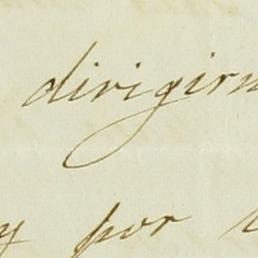 dirigirm
y por